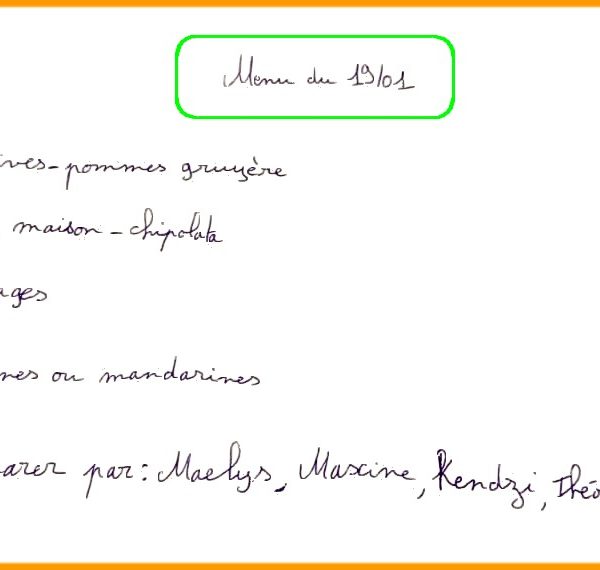 Menu du 19/01
ves-pommes gruyère
maison - chipolata
ages
nes ou mandarines
arer par : Maelys, Maxine, Kendzi, Théo